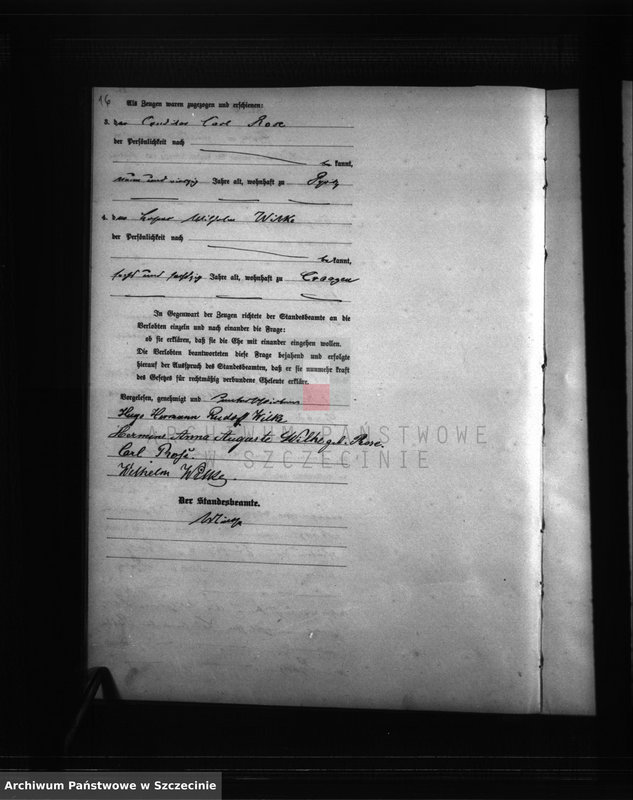 16
Als Zeugen waren zugezogen und erschienen:
3. der Conditor Carl Rose
der Persönlichkeit nach
be kannt,
neun und vierzig Jahre alt, wohnhaft zu Pyritz
4. der Wilhelm Wilke
der Persönlichkeit nach
be kannt,
sechs und sechzig Jahre alt, wohnhaft zu
In Gegenwart der Zeugen richtete der Standesbeamte an die
Verlobten einzeln und nach einander die Frage:
ob sie erklären, daß sie die Ehe mit einander eingehen wollen.
Die Verlobten beantworteten diese Frage bejahend und erfolgte
hierauf der Ausspruch des Standesbeamten, daß er sie nunmehr kraft
des Gesetzes für rechtmäßig verbundene Eheleute erkläre.
Vorgelesen, genehmigt und unterschrieben
Hugo Hermann Rudolf Wilke
Hermine Anna Auguste Wilke geb. Rose.
ARCHIWUM PAŃSTWOWE
W SZCZECINIE
Carl Rose.
Wilhelm Wilke.
Der Standesbeamte.
Archiwum Państwowe w Szczecinie